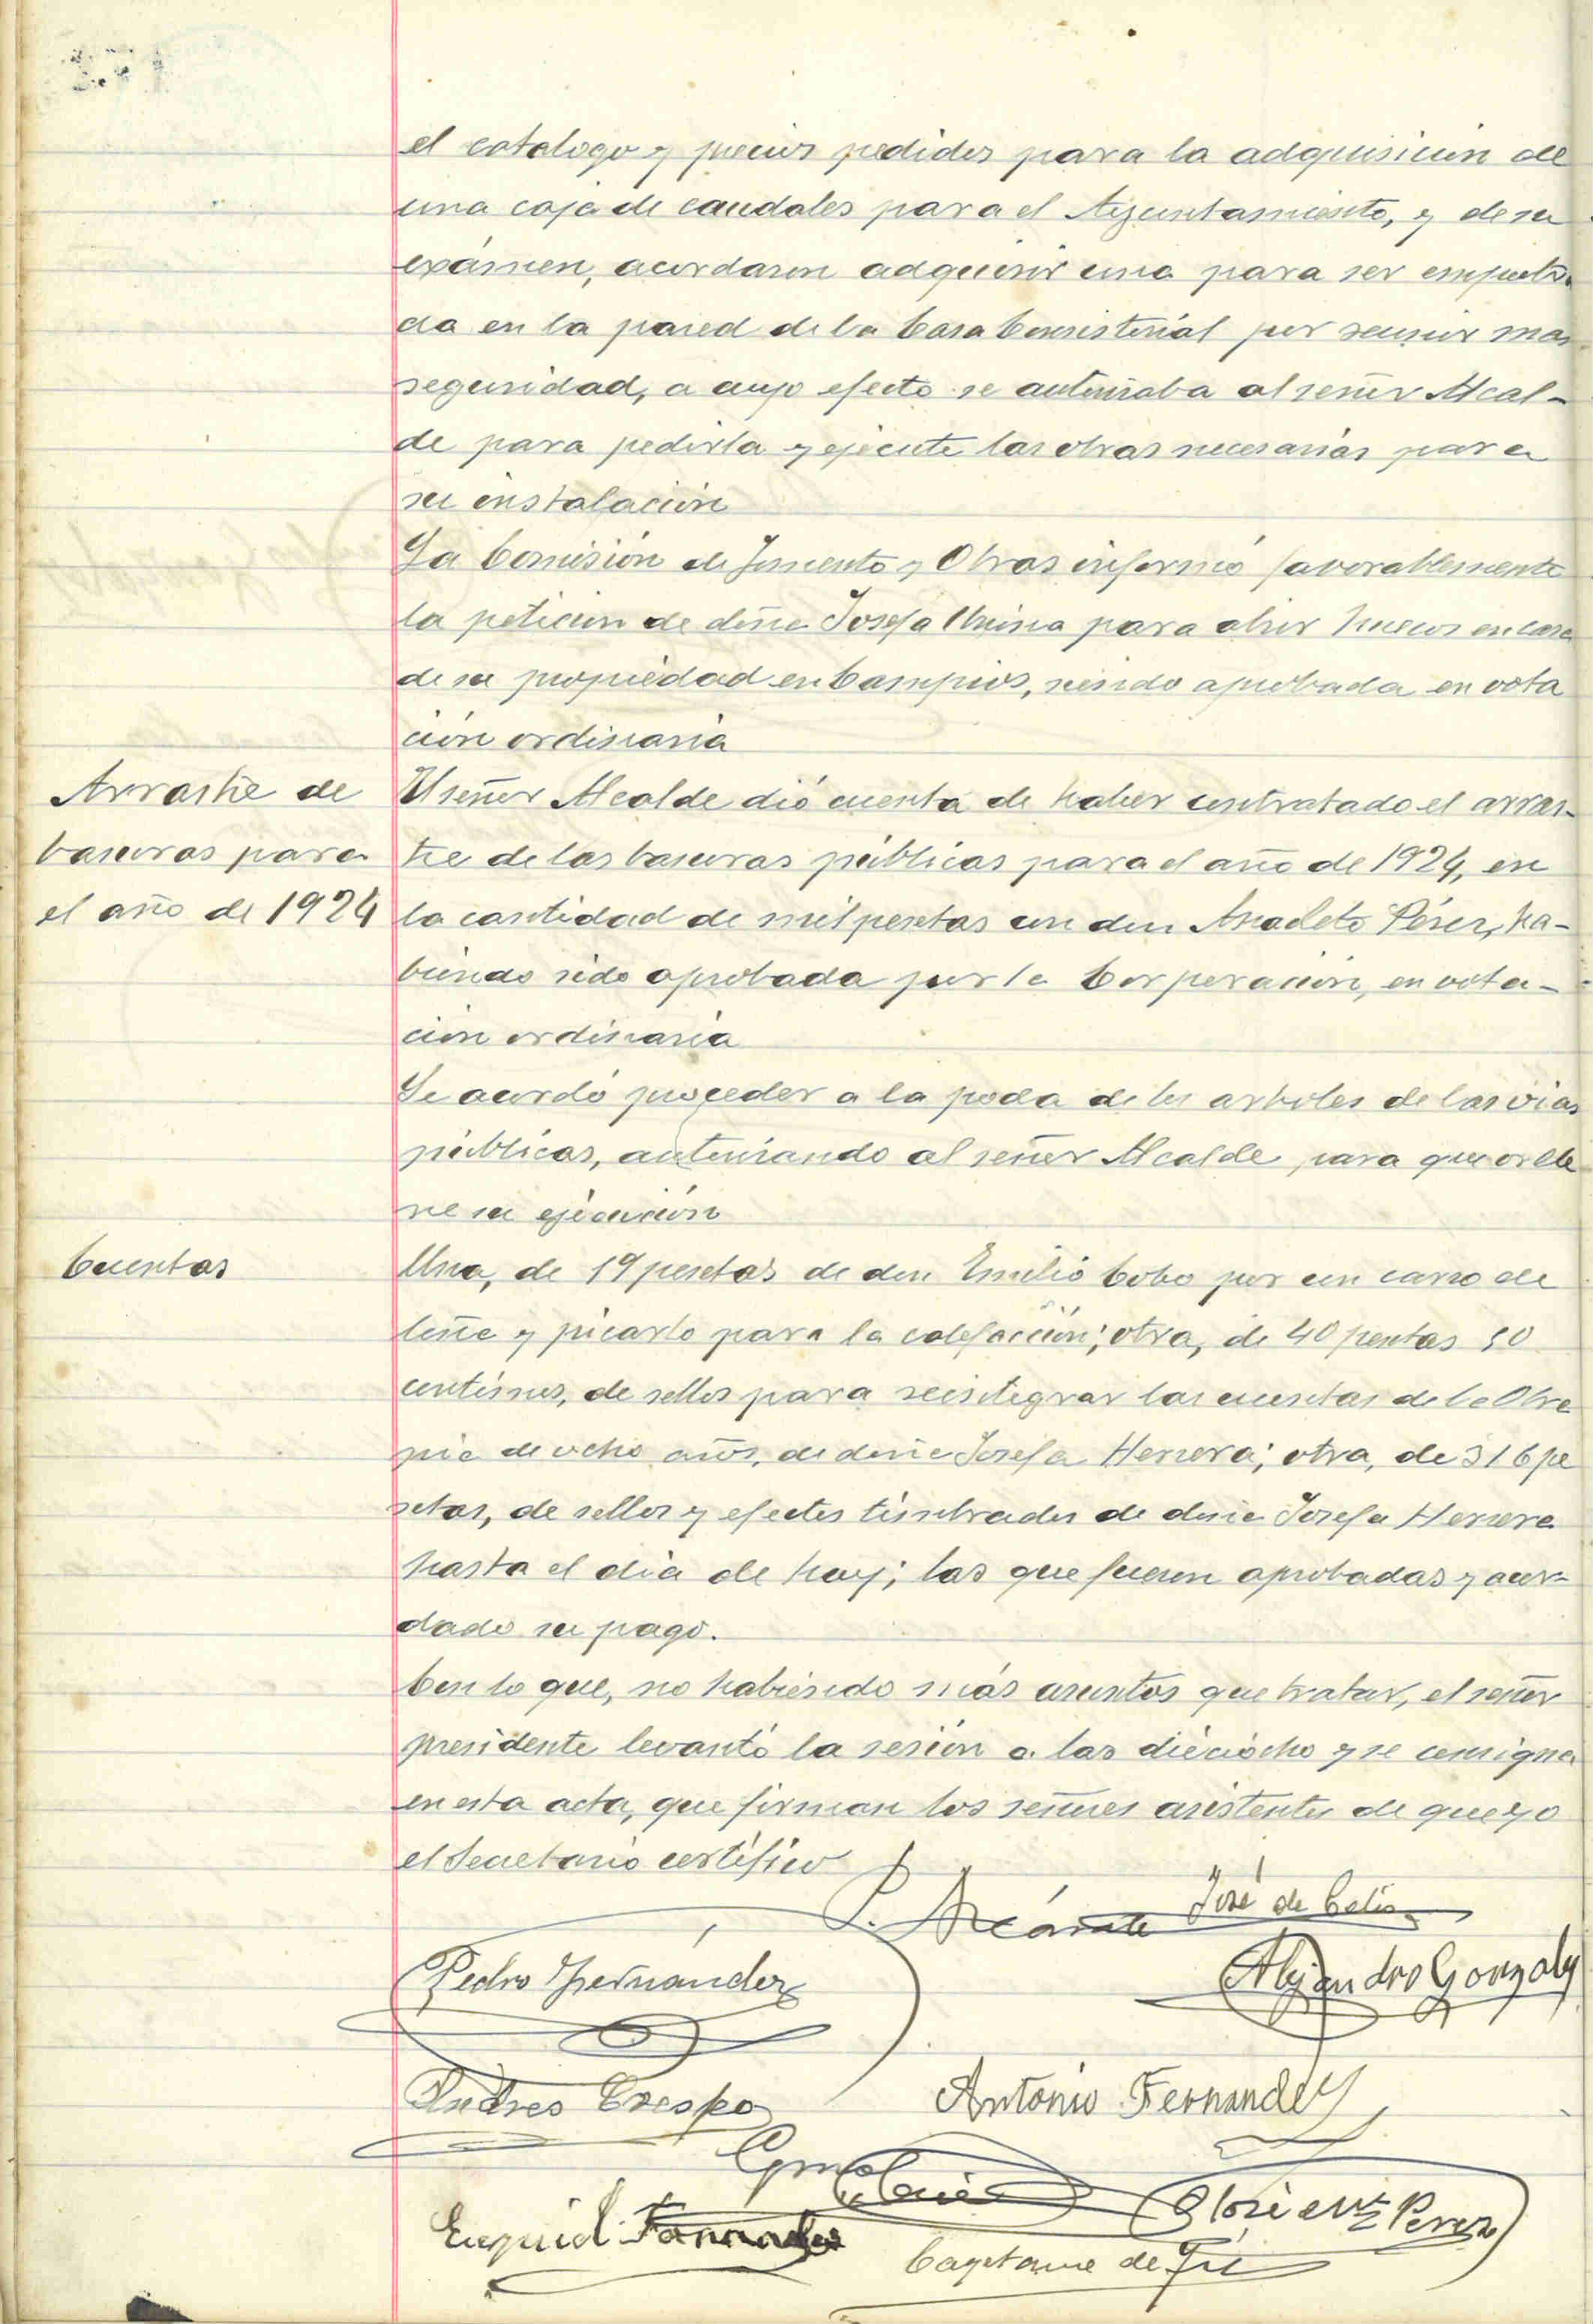 el catalogo y precios pedidos para la adquisicion de
una caja de caudales para el Ayuntamiento, y de su
exámen, acordaron adquirir una para ser empotra
da en la pared de la Casa Consistorial por reunir mas
seguridad, a cuyo efecto se autorizaba al señor Alcal-
de para pedirla y ejecute las obras necesarias para
su instalación
La Comisión de Fomento y Obras informó favorablemente
la peticion de doña Josefa para abrir huecos en casa
de su propiedad en Campios, siendo aprobada en vota
ción ordinaria
Arrastre de
basuras para
el año de 1924
El señor Alcalde dió cuenta de haber contratado el arras-
tre de las basuras públicas para el año de 1924, en
la cantidad de mil pesetas con don Anacleto Pérez, ha-
biendo sido aprobada por la Corporación, en vota-
ción ordinaria
Se acordó proceder a la poda de los arboles de las vias
públicas, autorizando al señor Alcalde para que orde
ne su ejecución
Cuentas
Una, de 19 pesetas de don Emilio Cobo por un carro de
leña y picarlo para la calefacción; otra, de 40 pesetas 50
centimos, de sellos para reintegrar las cuentas de la Obra
pia de ocho años, de doña Josefa Herrera; otra, de 316 pe
setas, de sellos y efectos timbrados de doña Josefa Herrera
hasta el dia de hoy; las que fueron aprobadas y acor-
dado su pago.
Con lo que, no habiendo más asuntos que tratar, el señor
presidente levantó la sesión a las dieciocho y se consigna
en esta acta, que firman los señores asistentes de que yo
el Secretario certifico
P. Azcárate José de Celis
Pedro Fernández Alejandro Gonzalez
Andres Crespo Antonio Fernandez
Perez
Ezequiel Fernandez
Cayetano de